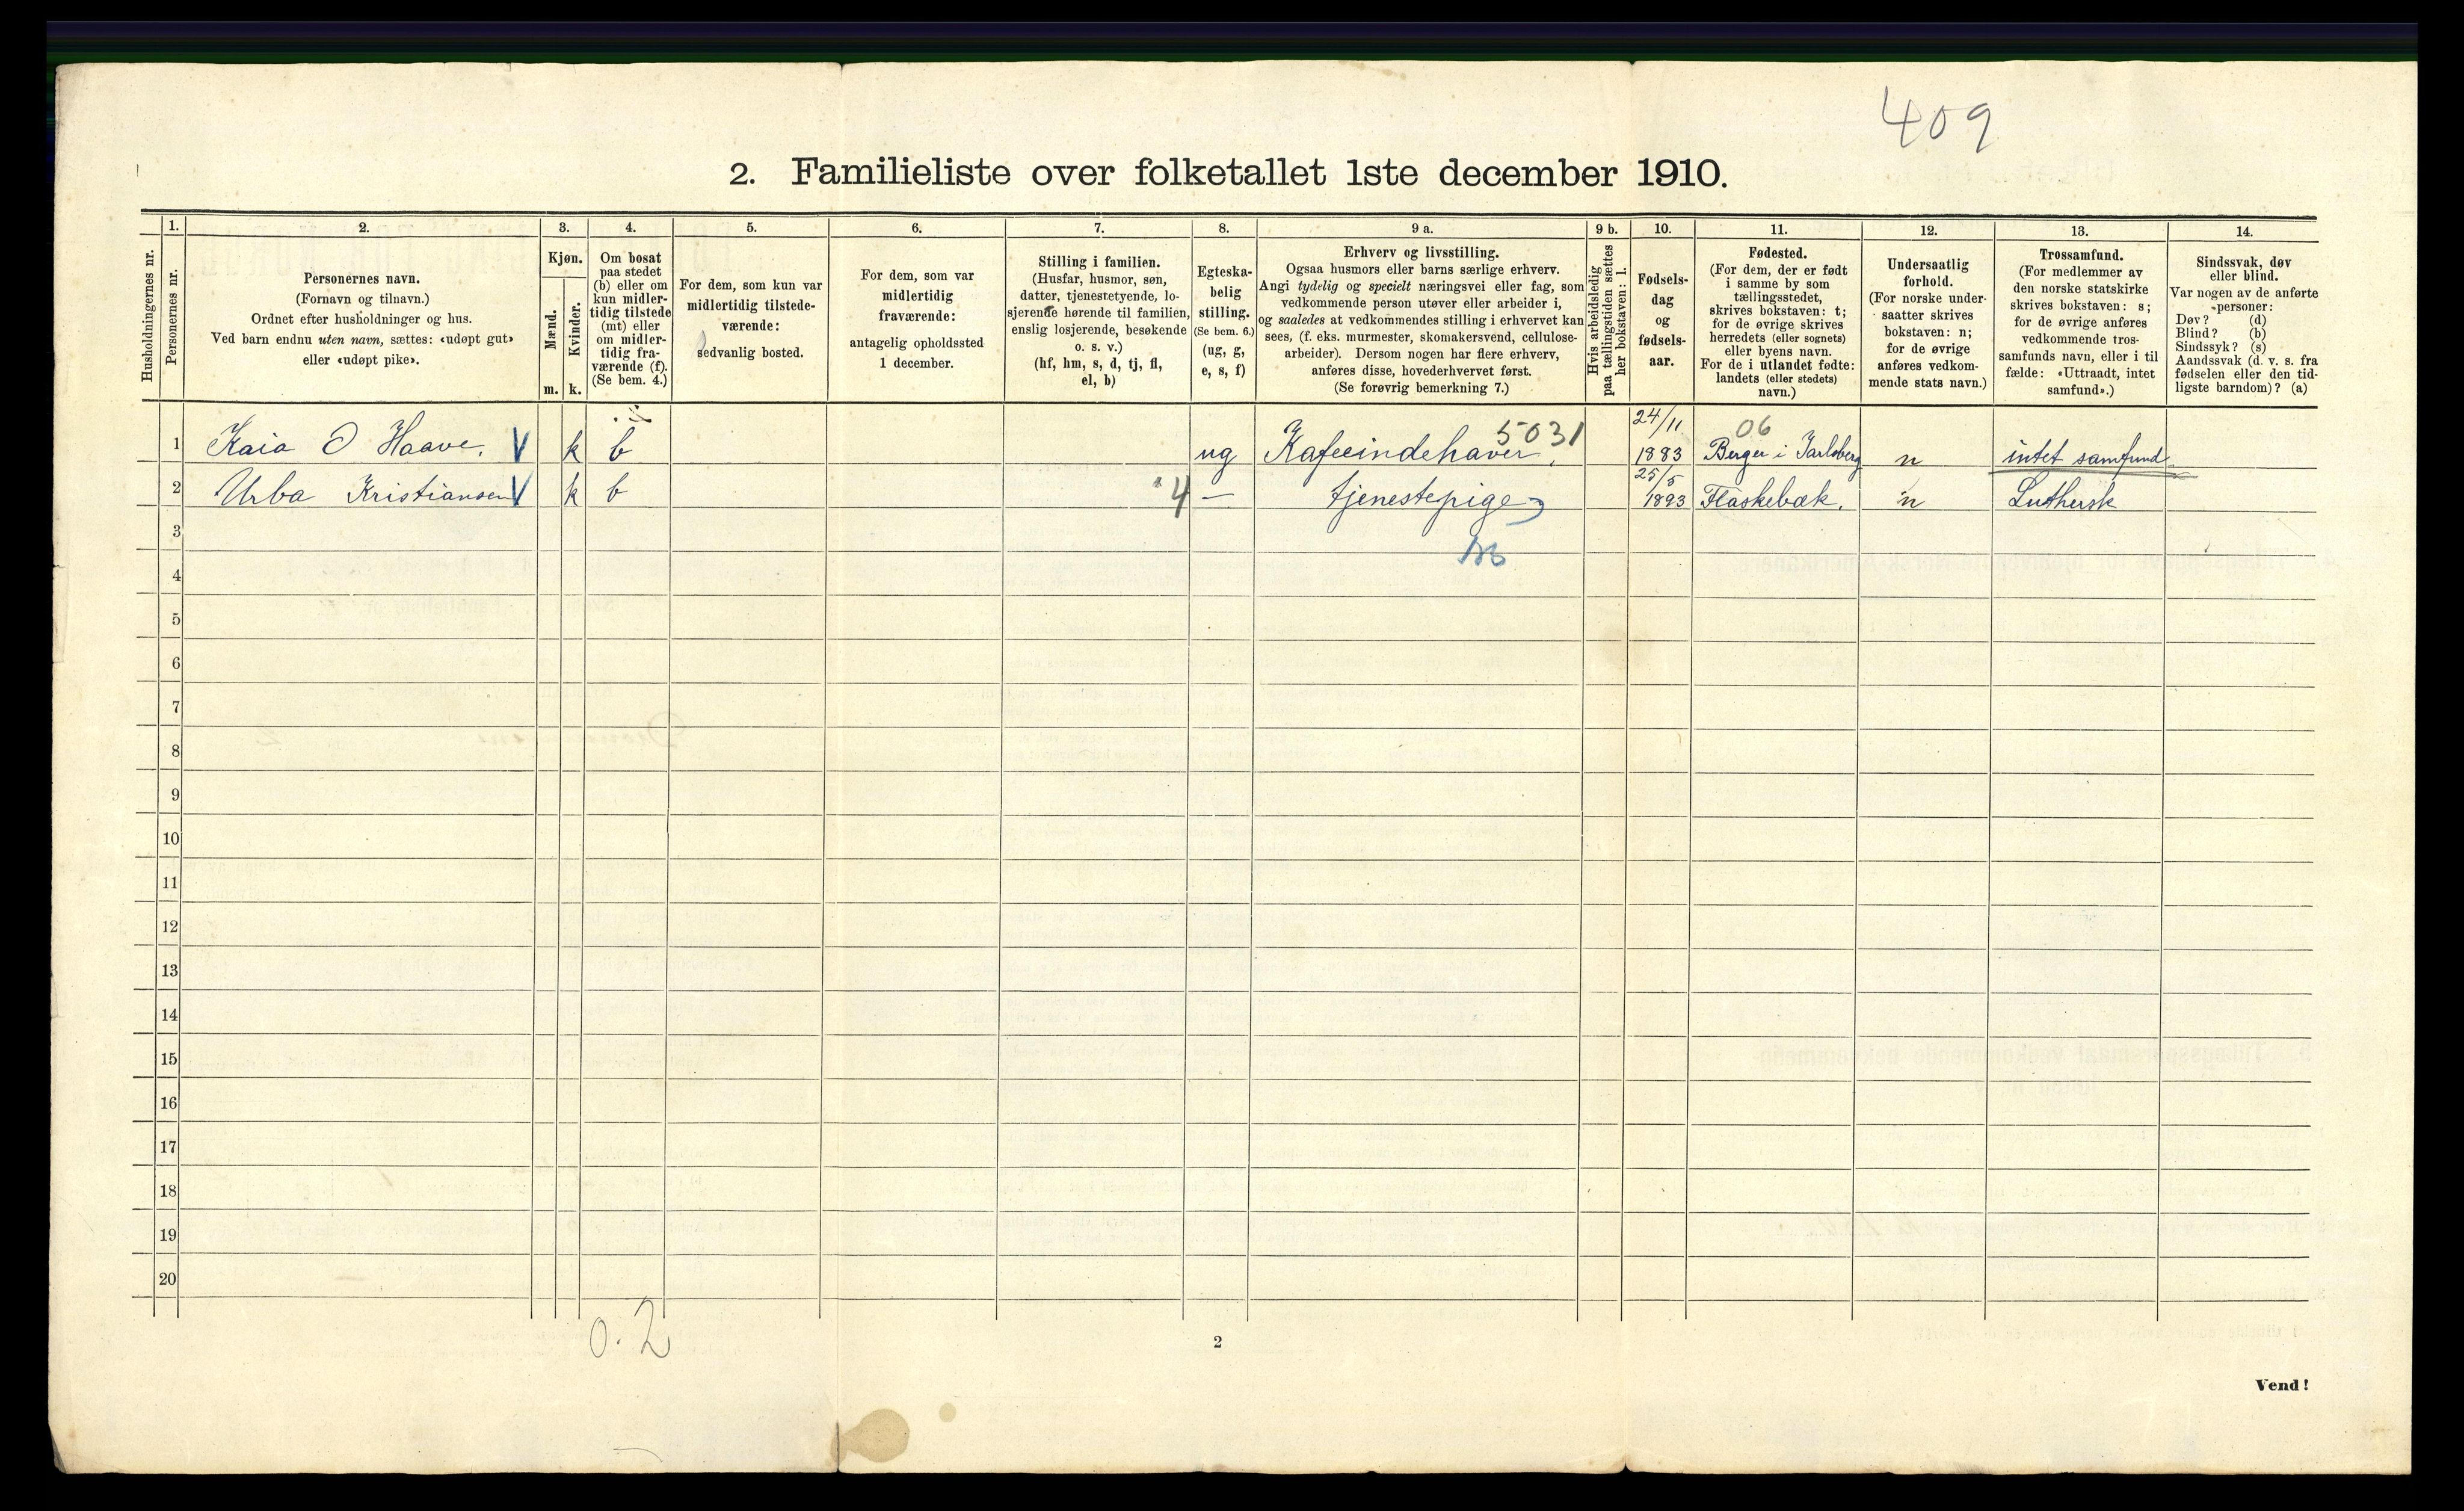 409
2. Familieliste over folketallet 1ste december 1910.
1. 2. 3. 4. 5. 6. 7. 8. 9 a. 9 b. 10. 11. 12. 13. 14.
Husholdningernes nr.
Personernes nr.
Personernes navn.
(Fornavn og tilnavn.)
Ordnet efter husholdninger og hus.
Ved barn endnu uten navn, sættes: «udøpt gut»
eller «udøpt pike».
Kjøn.
Mænd.
Kvinder.
m. k.
Om bosat
paa stedet
(b) eller om
kun midler-
tidig tilstede
(mt) eller
om midler-
tidig fra-
værende (f).
(Se bem. 4.)
For dem, som kun var
midlertidig tilstede-
værende:
sedvanlig bosted.
For dem, som var
midlertidig
fraværende:
antagelig opholdssted
1 december.
Stilling i familien.
(Husfar, husmor, søn,
datter, tjenestetyende, lo-
sjerende hørende til familien,
enslig losjerende, besøkende
o. s. v.)
(hf, hm, s, d, tj, fl,
el, b)
Egteska-
belig
stilling.
(Se bem. 6.)
(ug, g,
e, s, f)
Erhverv og livsstilling.
Ogsaa husmors eller barns særlige erhverv.
Angi tydelig og specielt næringsvei eller fag, som
vedkommende person utøver eller arbeider i,
og saaledes at vedkommendes stilling i erhvervet kan
sees, (f. eks. murmester, skomakersvend, cellulose-
arbeider). Dersom nogen har flere erhverv,
anføres disse, hovederhvervet først.
(Se forøvrig bemerkning 7.)
Hvis arbeidsledig
paa tællingstiden sættes
her bokstaven: l.
Fødsels-
dag
og
fødsels-
aar.
Fødested.
(For dem, der er født
i samme by som
tællingsstedet,
skrives bokstaven: t;
for de øvrige skrives
herredets (eller sognets)
eller byens navn.
For de i utlandet fødte:
landets (eller stedets)
navn.)
Undersaatlig
forhold.
(For norske under-
saatter skrives
bokstaven: n;
for de øvrige
anføres vedkom-
mende stats navn.)
Trossamfund.
(For medlemmer av
den norske statskirke
skrives bokstaven: s;
for de øvrige anføres
vedkommende tros-
samfunds navn, eller i til
fælde: «Uttraadt, intet
samfund».)
Sindssvak, døv
eller blind.
Var nogen av de anførte
personer:
Døv? (d)
Blind? (b)
Sindssyk? (s)
Aandssvak (d. v. s. fra
fødselen eller den tid-
ligste barndom)? (a)
5031 24/11 06
1 Kaia O Haave. V k b ug Kafeeindehaver, 1883 Berger i Jarlsberg n intet samfund
25/5
2 Urba Kristiansen V k b 4 — tjenestepige 1893 Flaskebæk. n Luthersk
3
4
5
6
7
8
9
10
11
12
13
14
15
16
17
18
19
20
0. 2
2
Vend!